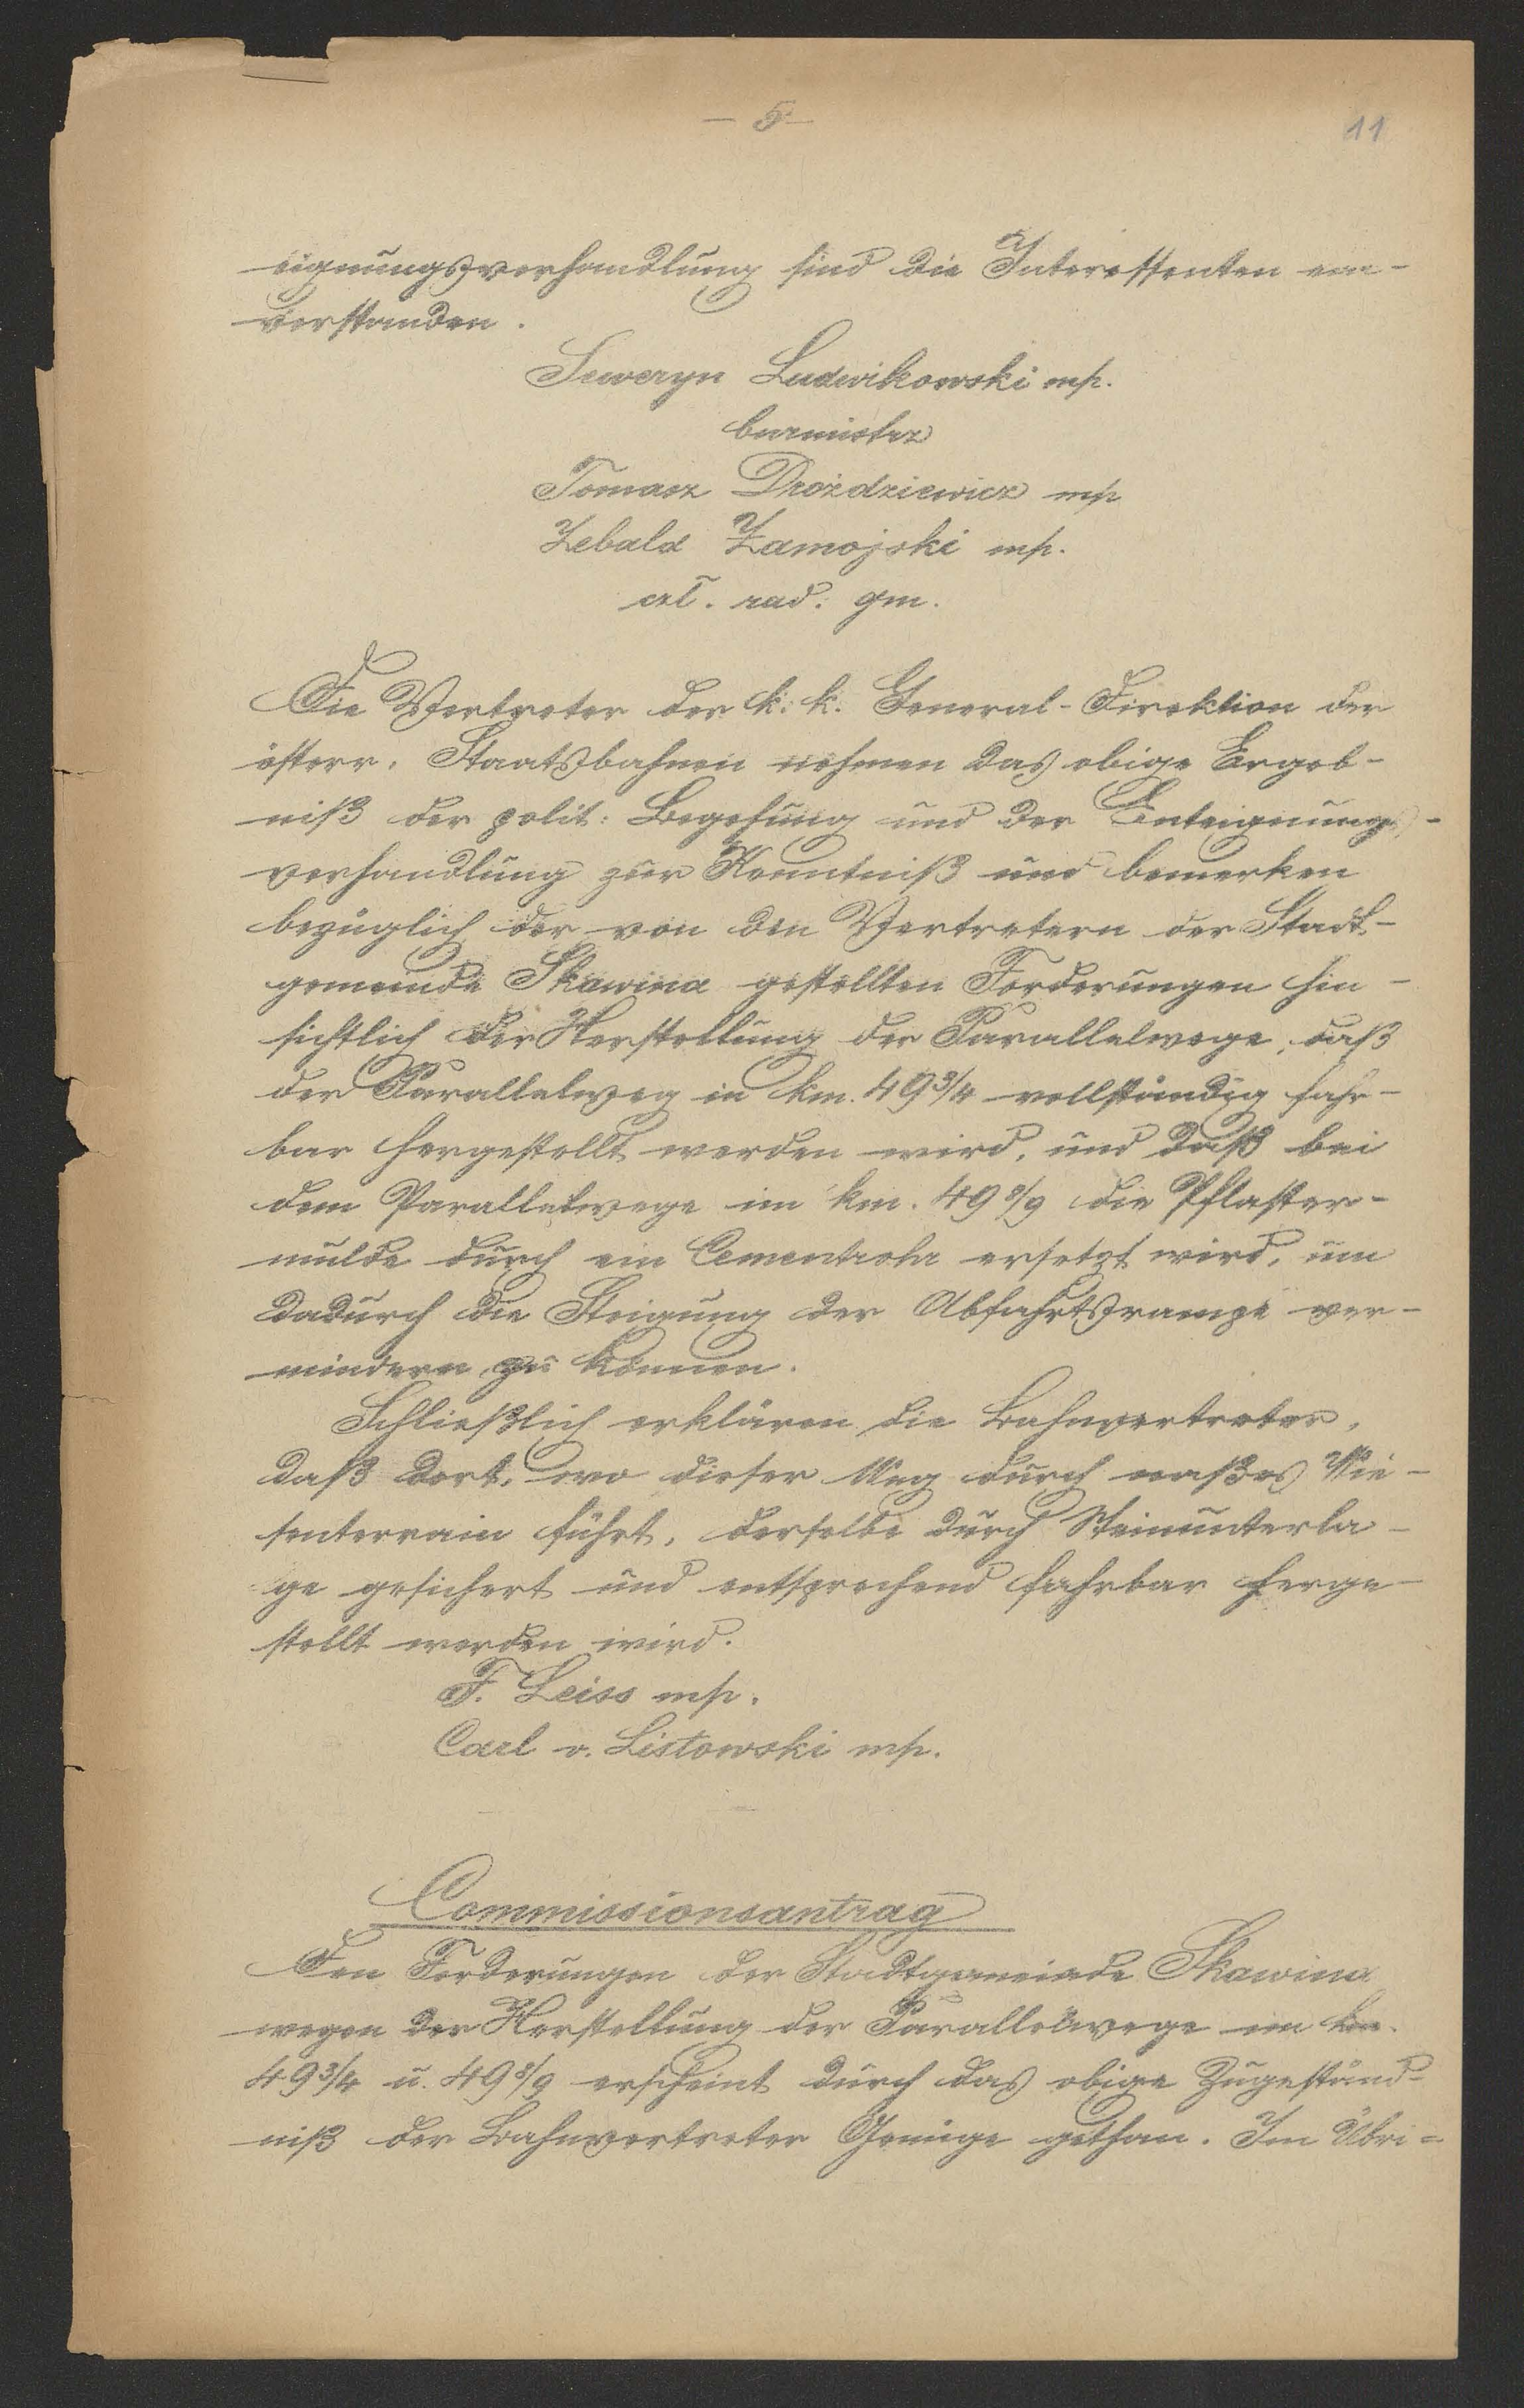 — 5 —
11
eignungsverhandlung sind die Interessenten ein-
verstanden.
Seweryn Ludwikowski mp.
burmistrz
Tomasz Drożdziewicz mp
Zebald Zamojski mp.
czł. rad. gm.
Die Vertreter der k. k. General-Direktion der
österr. Staatsbahnen nehmen das obige Ergeb-
niß der polit. Begehung und der Enteignungs-
verhandlung zur Kenntniß und bemerken
bezüglich der von den Vertretern der Stadt-
gemeinde Skawina gestellten Forderungen hin-
sichtlich der Herstellung der Parallelwege, daß
der Parallelweg in km. 49 3/4 vollständig fahr-
bar hergestellt werden wird, und daß bei
dem Parallelwege im km. 49 8/9 die Pflaster-
mulde durch ein Cementrohr ersetzt wird, um
dadurch die Steigung der Abfahrtsrampe ver-
mindern zu können.
Schließlich erklären die Bahnvertreter,
daß dort, wo dieser Weg durch naßes Wie-
senterrain führt, derselbe durch Steinunterla-
ge gesichert und entsprechend fahrbar herge-
stellt werden wird.
F. Leiss mp.
Carl v. Listowski mp.
Commissionsantrag
Den Forderungen der Stadtgemeinde Skawina
wegen der Herstellung der Parallelwege im km.
49 3/4 u. 49 8/9 erscheint durch das obige Zugeständ-
niß der Bahnvertreter Genüge gethan. Im Übri-